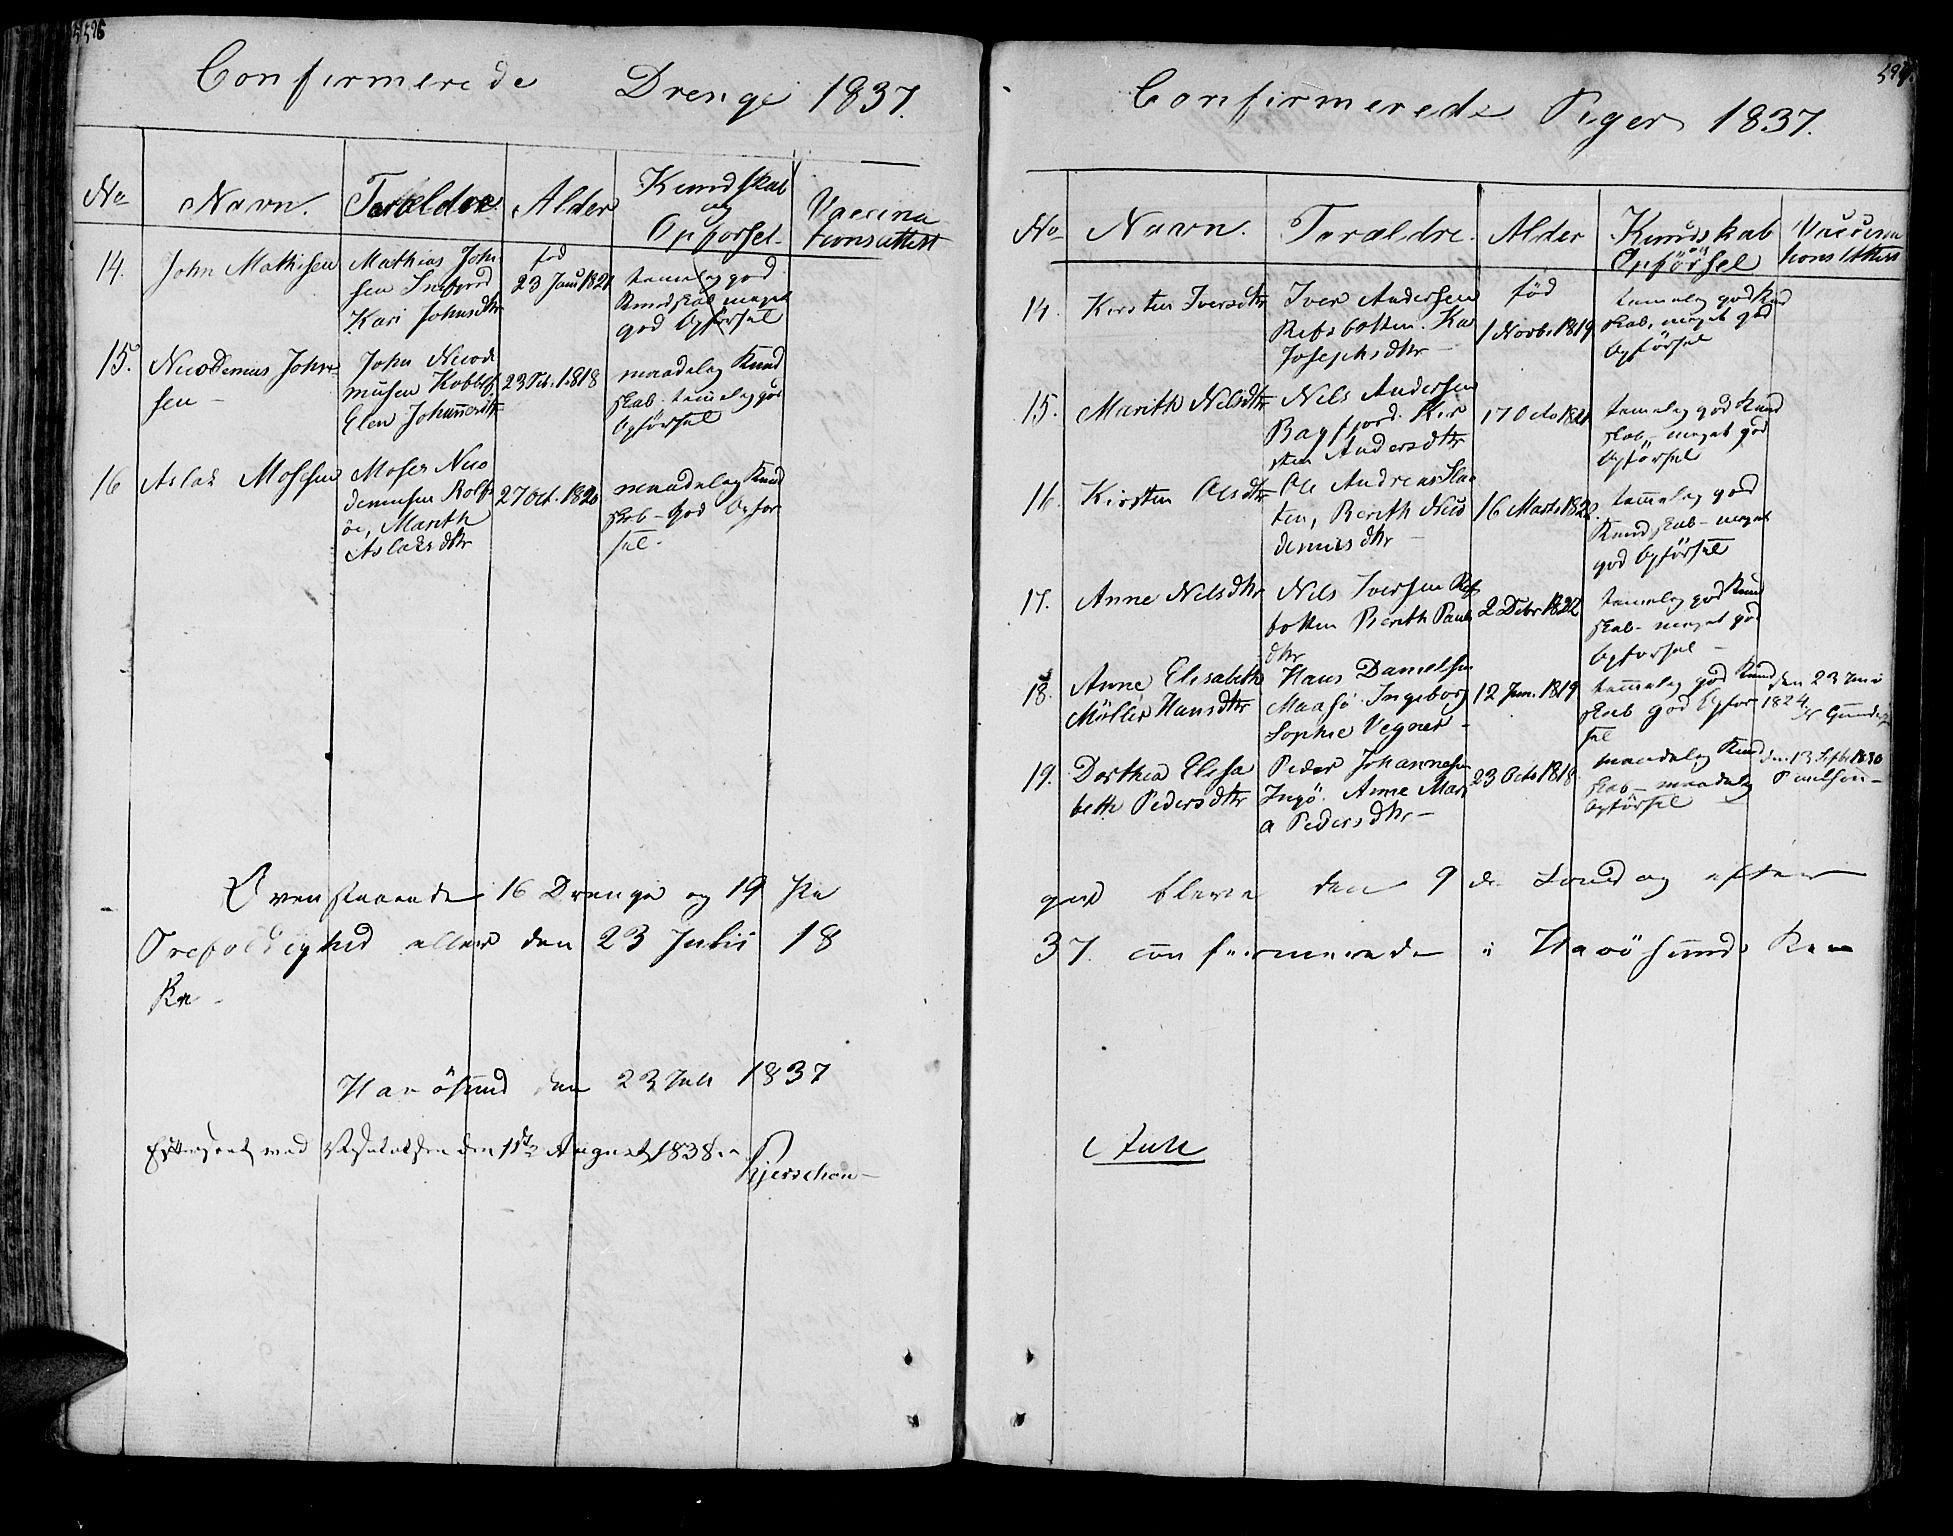 596
Confirmerede Drenge 1837.
No
Navn.
Foræeldre
Alder
Kundskab
og
Opförsel.
Vaccina
tionsattest
14.
John Mathisen
Mathias John
sen Snefjord
Kari Johnsdtr
fød
23 Janv 1821
temelig god
Kundskab meget
god Opførsel
15.
Nicodemus John
sen –
John Nicode
musen Kobbef
Elen Johannesdtr
23 Feb. 1818
maadelig Kund
skab. temelig god
Opförsel
16
Aslak Mosesen
Moses Nico
demusen Rolfs
öe, Marith
Aslaksdtr
27 Oct. 1820
maadelig Kund
skab – God Opfør
sel.
Ovenstaaende 16 Drenge og 19 Pi
Trefoldighed eller den 23 Julii 18
ke –
Havösund den 23 Juli 1837
Eftterseet med Visitatsen den 11te August 1838.
Kjerschou –
597.
Confirmerede Piger 1837.
No
Navn.
Forældre.
Alder
Kundskab
Opförsel
Vaccina
tions Attest
14.
Kirsten Iversdtr
Iver Andersen
Refsbotten. Kar
Josephsdtr –
fød
1 Novbr 1819
temelig god Kund
skab, meget god
Opförsel
15.
Marith Nilsdtr
Nils Andersen
Bagfjord. Kir
sten Andersdtr
17 Octo 1821
temelig god Kund
skab – meget god
Opförsel
16.
Kirsten Olsdtr
Ole Andreas Slaa
ten, Berith Nico
demusdtr –
16 Marts 1822.
temelig god
Kundskab – meget
god Opförsel
17.
Anne Nilsdtr
Nils Iversen Refs
botten Berith Pauls
dtr
2 Debr 1822
temelig god Kund
skab – meget god
Opförsel –
18.
Anne Elisabeth
Möller Hansdtr
Hans Danielsen
Maasö. Ingeborg
Sophie Vegner –
12 Jun. 1819
temelig god Kund
skab god Opför
sel
den 23 Juni
1824,
19.
Dorthea Elisa
beth Pedersdtr
Peder Johannesen
Ingö. Anne Mari
a Pedersdtr –
23 Octo 1818
maadelig Kund
skab – maadelig
Opförsel
den 13 Septbr 1830
Paulsen –
ger bleve den 9 de Söndag efter
37. confirmerede i Havösunds Kir
Aall